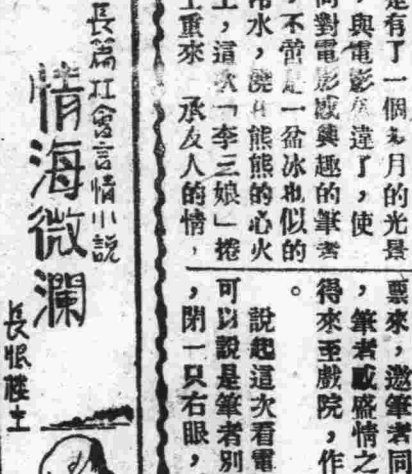 是有了一個多月的光景
,與電影久違了,使
向對電影感興趣的筆者
,不啻是一盆冰也似的
冷水,澆熊熊的心火
上,這次「李三娘」捲
土重來 承友人的情,
票來,邀筆者同
,筆者感盛情之
得來至戲院,作
。
說起這次看電
可以說是筆者別
,閉一只右眼,
長篇社會言情小說
情海微瀾
長恨樓主